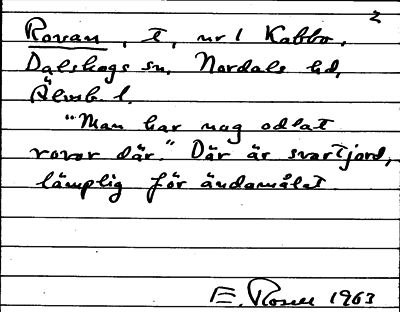 2
Rovan, t, nr 1 Kabbo,
Dalskogs sn, Nordals hd,
Älvsb. l.
"Man har nog odlat
rovor där." Där är svartjord,
lämplig för ändamålet
E. Rosell 1963